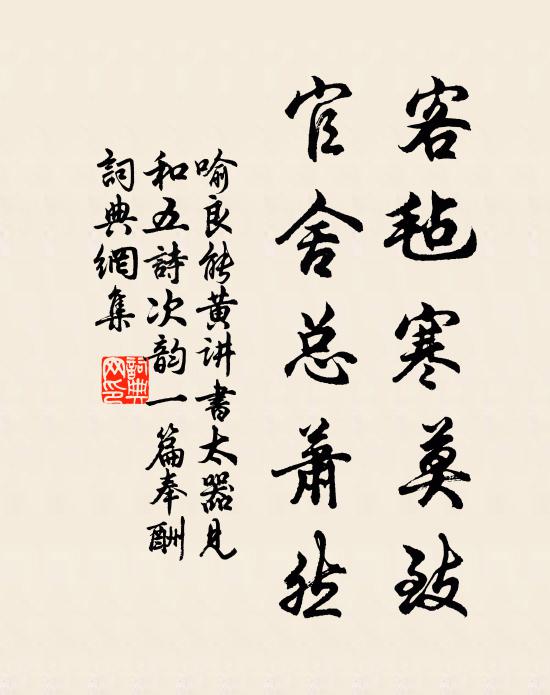 客毡寒莫致
官舍总萧然
喻良能黄讲书太器见
和五詩次韵一篇奉酬
詞典網集
詞典網印